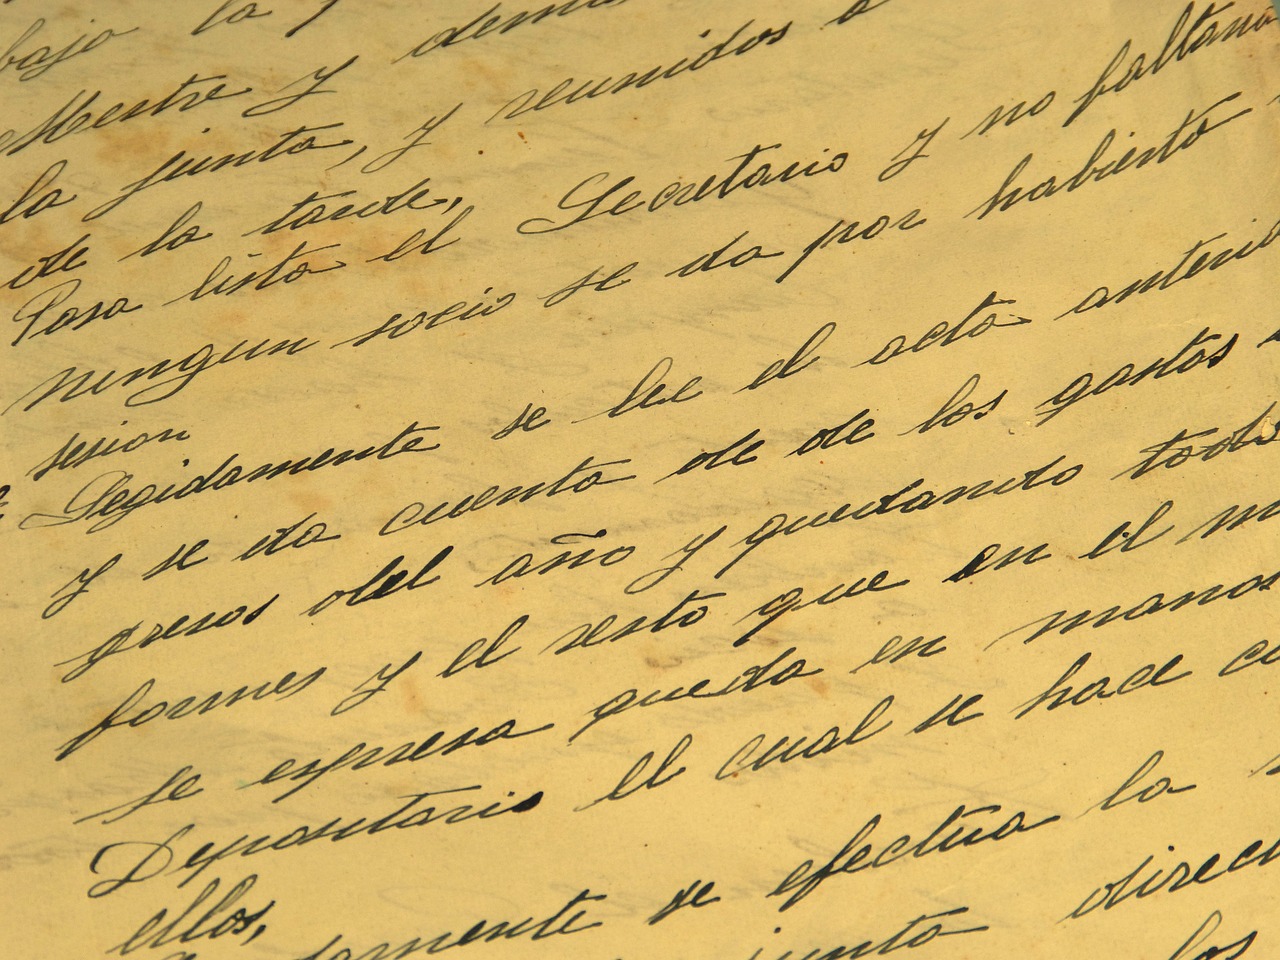 bajo la
Mestre y
la junta, y reunidos a
de la tarde,
Pasa lista el Secretario y no faltando
ningun socio se da por habierto
sesion
Segidamente se lee el acta anterior
y se da cuenta de de los gastos
gresos del año y quedando todos
formes y el resto que en el
se expresa queda en manos
Depositario el cual se hace
ellos,
se efectúa la
junta
los